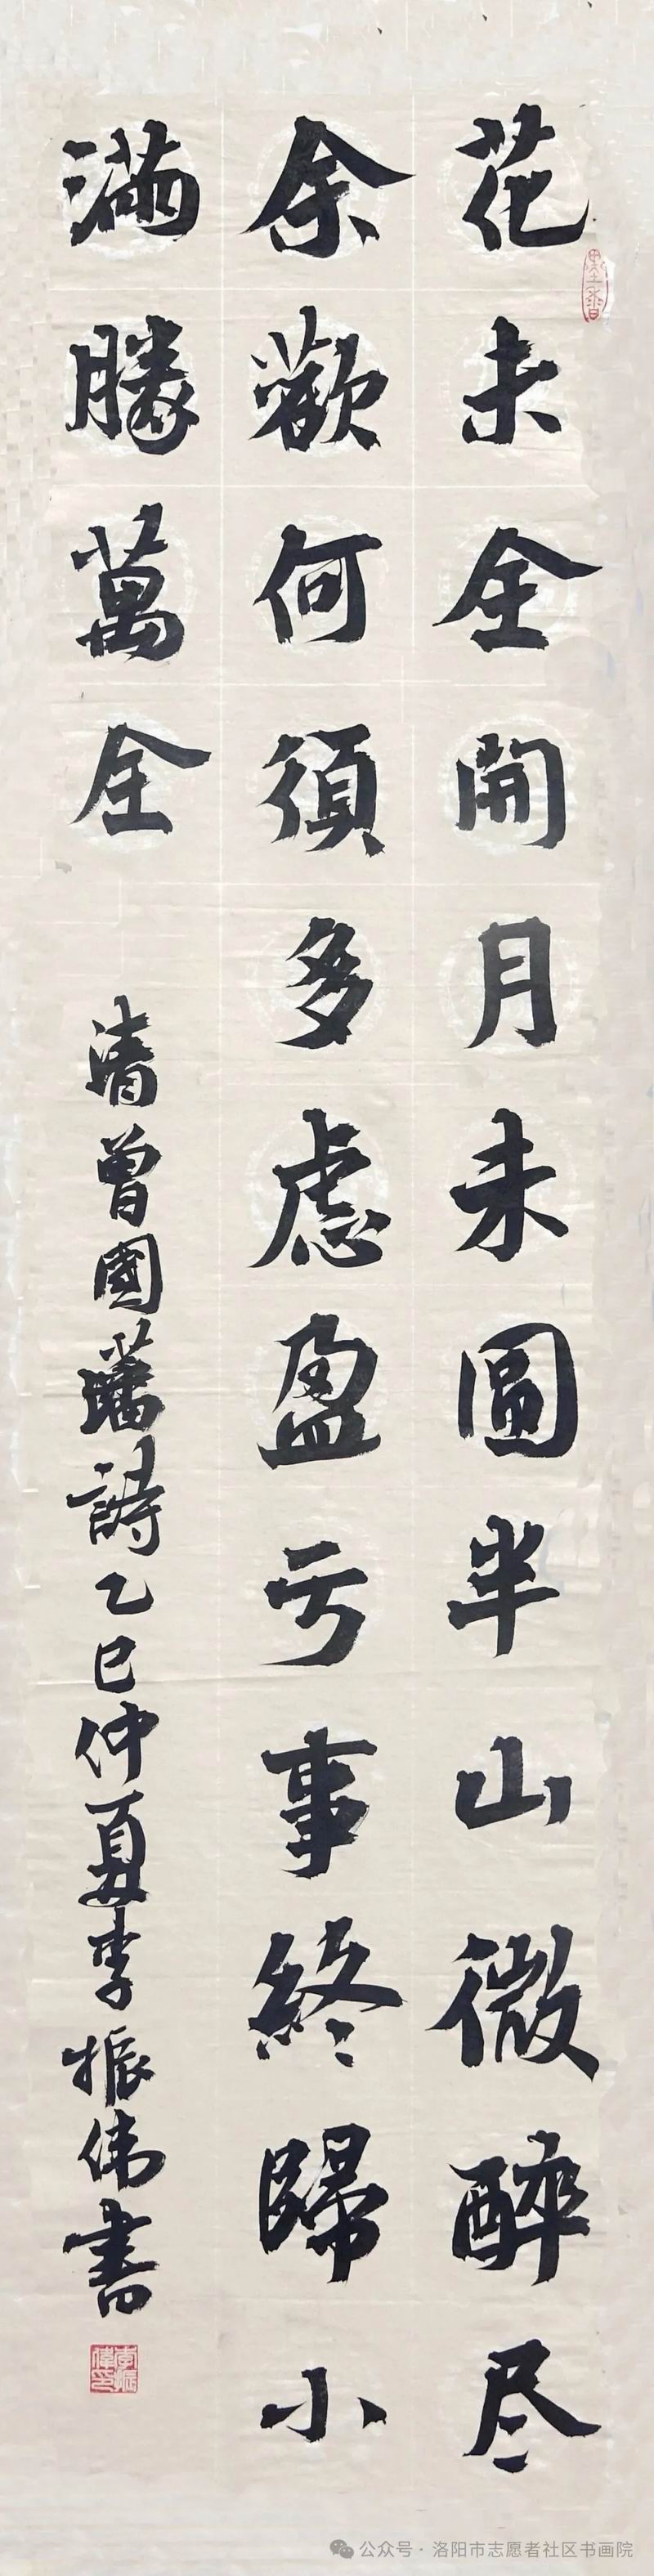 花未全開月未圓半山微醉尽
余歡何須多慮盈亏事終歸小
滿勝萬全
清曾國藩詩乙巳仲夏李振伟書
墨香
李振偉印
公众号·洛阳市志愿者社区书画院